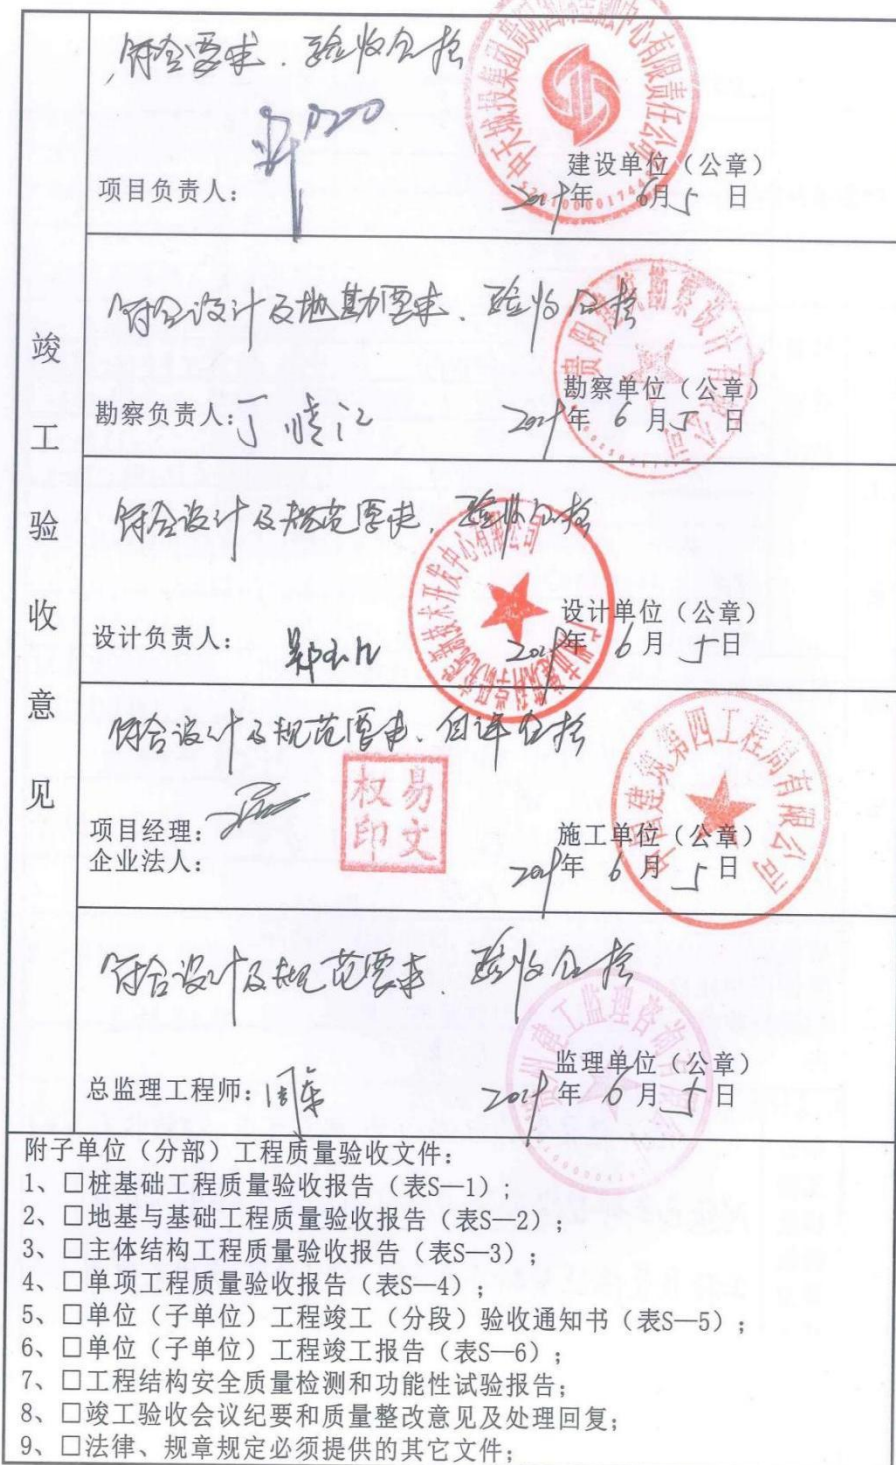 竣工验收意见
符合要求、验收合格
中天城投集团贵阳国际金融中心有限责任公司
项目负责人:
建设单位(公章)
年 6月5日
符合设计及地勘要求、验收合格
勘察负责人:丁
勘察单位(公章)
年 6月5日
符合设计及规范要求,验收合格
设计负责人:
设计单位(公章)
年 6月5日
符合设计及规范要求、自评合格
项目经理:
企业法人:
易文
权印
中国建筑第四工程局有限公司
施工单位(公章)
年 6月5日
符合设计及规范要求、验收合格
总监理工程师:周
监理单位(公章)
年 6月5日
附子单位(分部)工程质量验收文件:
1、□桩基础工程质量验收报告(表S—1);
2、□地基与基础工程质量验收报告(表S—2);
3、□主体结构工程质量验收报告(表S—3);
4、□单项工程质量验收报告(表S—4);
5、□单位(子单位)工程竣工(分段)验收通知书(表S—5);
6、□单位(子单位)工程竣工报告(表S—6);
7、□工程结构安全质量检测和功能性试验报告;
8、□竣工验收会议纪要和质量整改意见及处理回复;
9、□法律、规章规定必须提供的其它文件;